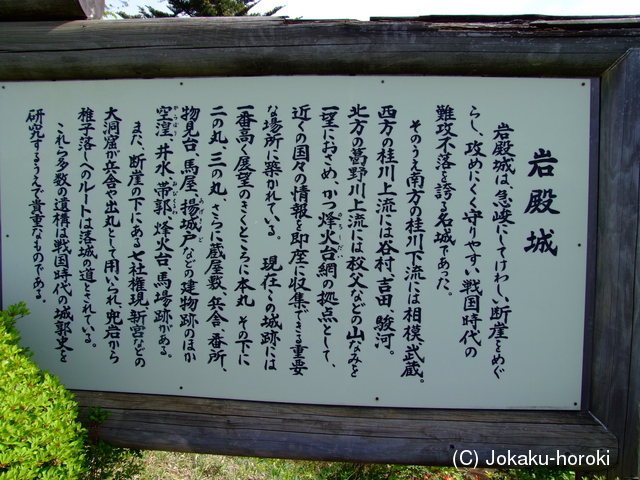 岩殿城
岩殿城は、急峻にしてけわしい断崖をめぐ
らし、攻めにくく守りやすい戦国時代の
難攻不落を誇る名城であった。
そのうえ南方の桂川下流には相模、武蔵。
西方の桂川上流には谷村、吉田、駿河。
北方の葛野川上流には秩父などの山なみを
一望におさめ、かつ烽火台網の拠点として、
のろしだい
近くの国々の情報を即座に収集できる重要
な場所に築かれている。 現在この城跡には
一番高く展望のきくところに本丸 その下に
二の丸、三の丸、さらに蔵屋敷、兵舎、番所、
物見台、馬屋、揚城戸などの建物跡のほか
あげきど
空湟、井水、帯郭、烽火台、馬場跡がある。
からぼり
おびくるわ
また、断崖の下にある七社権現、新宮などの
大洞窟が兵舎や出丸として用いられ、兜岩から
稚子落しへのルートは落城の道とされている。
これら多数の遺構は戦国時代の城郭史を
研究するうえで貴重なものである。
(C) Jokaku-horoki